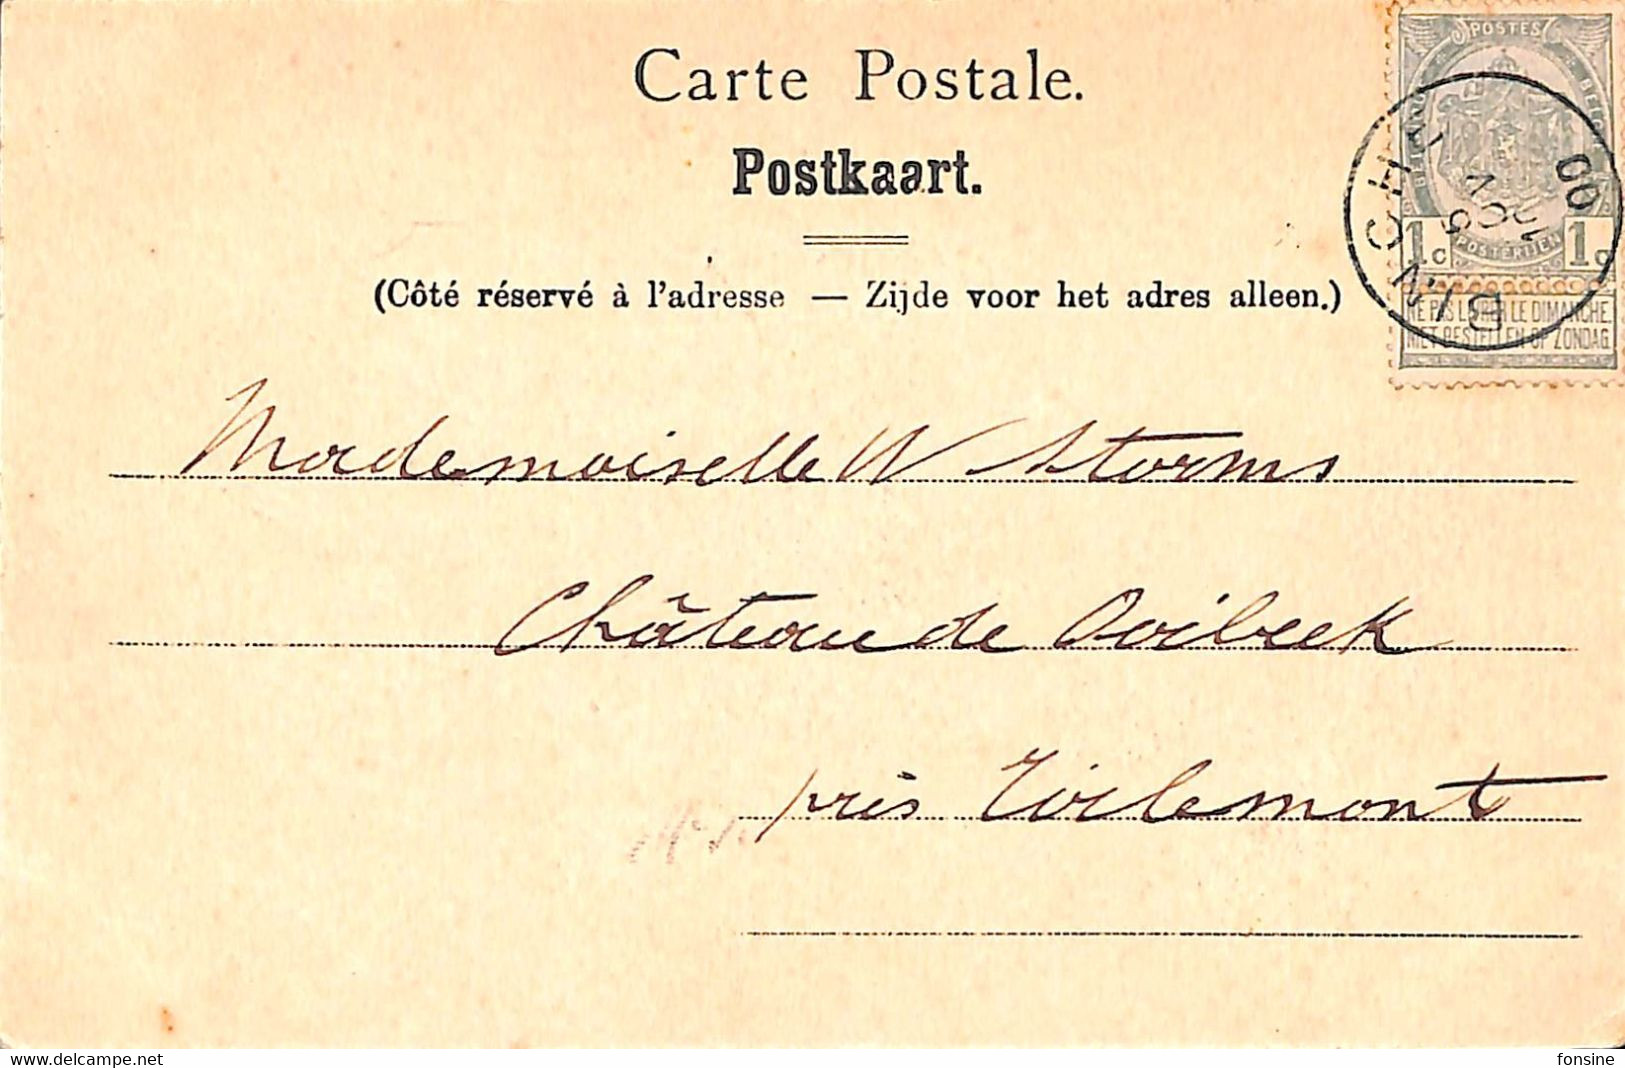 Carte Postale.
Postkaart.
(Côté réservé à l'adresse — Zijde voor het adres alleen.)
POSTES
1c POSTERIJEN 1c
NE PAS LIVRER LE DIMANCHE.
NIET BESTELLEN OP ZONDAG.
BINCHE
5
00
Mademoiselle W Storms
Château de Ooibeek
près Tirlemont
www.delcampe.net
fonsine